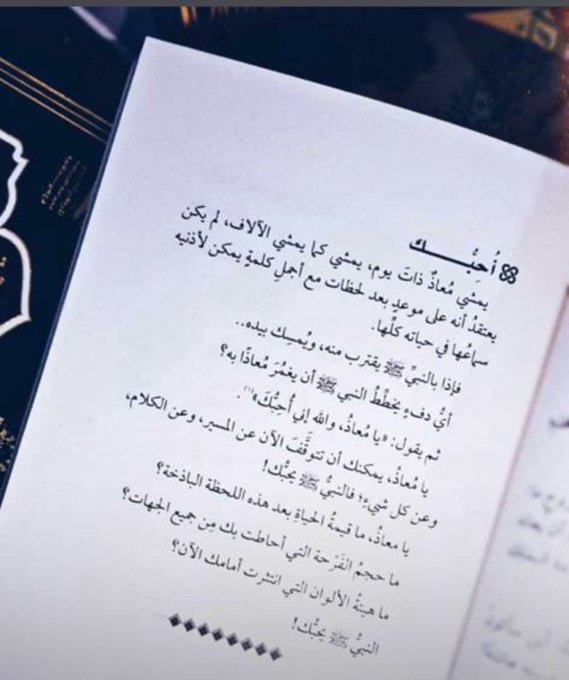 أُحِبُّـــك
يمشي مُعاذٌ ذاتَ يوم، يمشي كما يمشي الآلاف، لم يكن
يعتقدُ أنه على موعدٍ بعد لحظات مع أجملِ كلمةٍ يمكن لأذنيه
سماعُها في حياته كلِّها.
فإذا بالنبيِّ ﷺ يقترب منه، ويُمسِك بيده..
أيُّ دفءٍ يخطِّطُ النبي ﷺ أن يغمُرَ مُعاذًا به؟
ثم يقول: «يا مُعاذُ، والله إني أُحبُّكَ»(١).
يا مُعاذُ، يمكنك أن تتوقَّفَ الآن عن المسير، وعن الكلام،
وعن كل شيءٍ؛ فالنبيُّ ﷺ يحبُّك!
يا معاذُ، ما قيمةُ الحياةِ بعد هذه اللحظة الباذخة؟
ما حجمُ الفَرْحة التي أحاطت بك مِن جميع الجهات؟
ما هيئةُ الألوان التي انتثرت أمامك الآن؟
النبيُّ ﷺ يحبُّك!